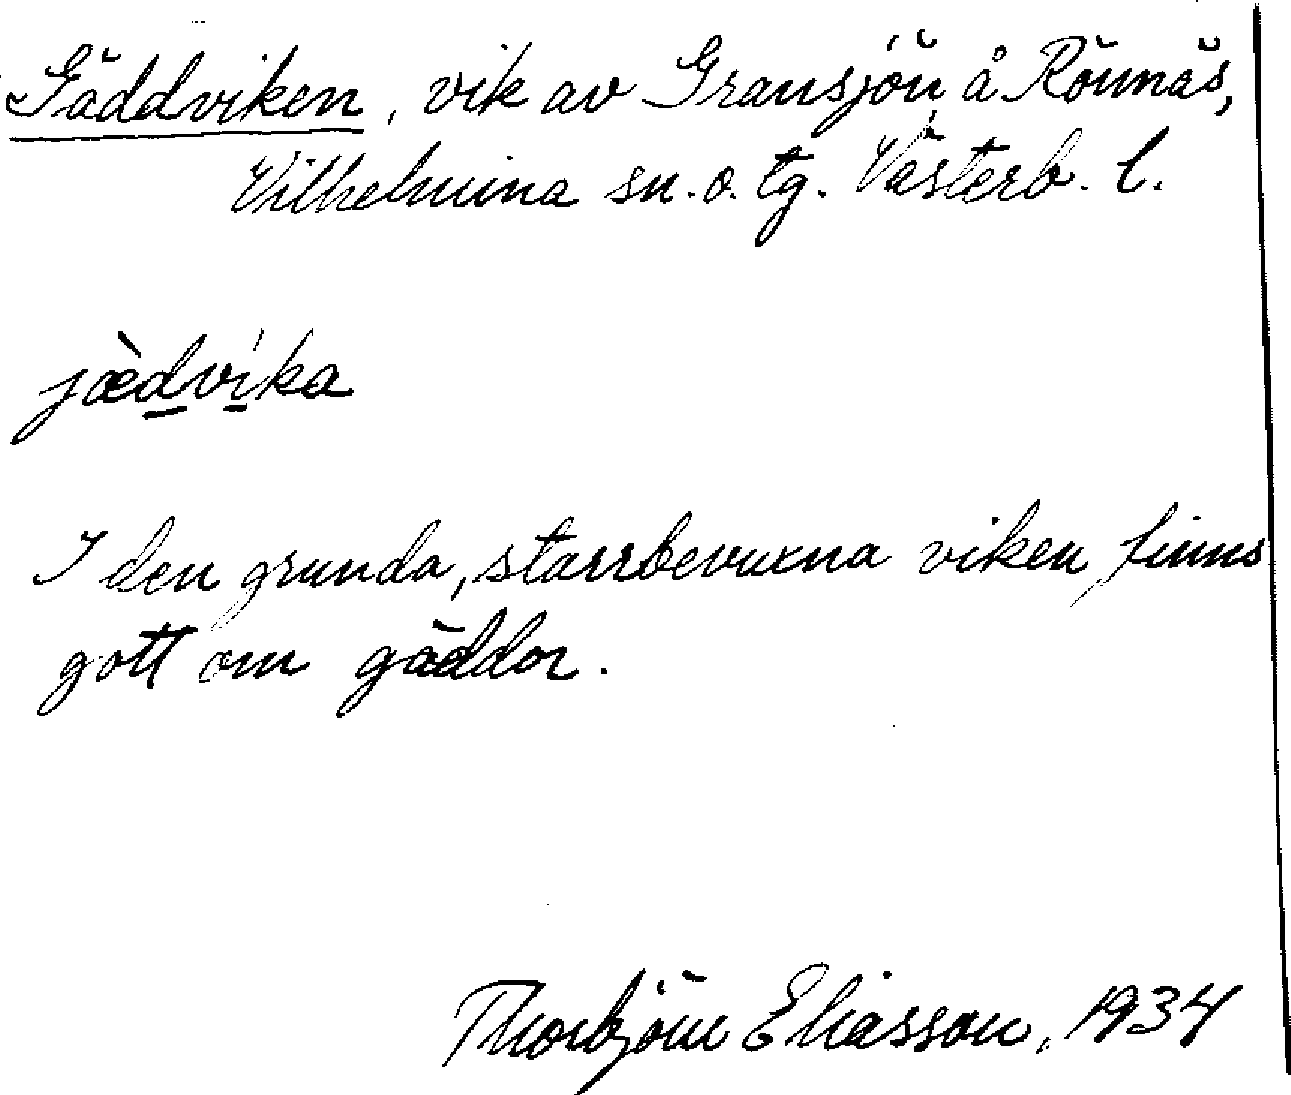 Gäddviken, vik av Gransjön å Rönnäs,
Vilhelmina sn. o. tg. Västerb. l.
jæ̀dvika
I den grunda, starrbevuxna viken finns
gott om gäddor.
Thorbjörn Eliasson, 1934